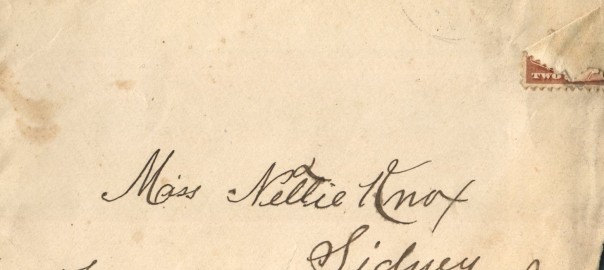 TWO
Miss Nellie Knox
Sidney